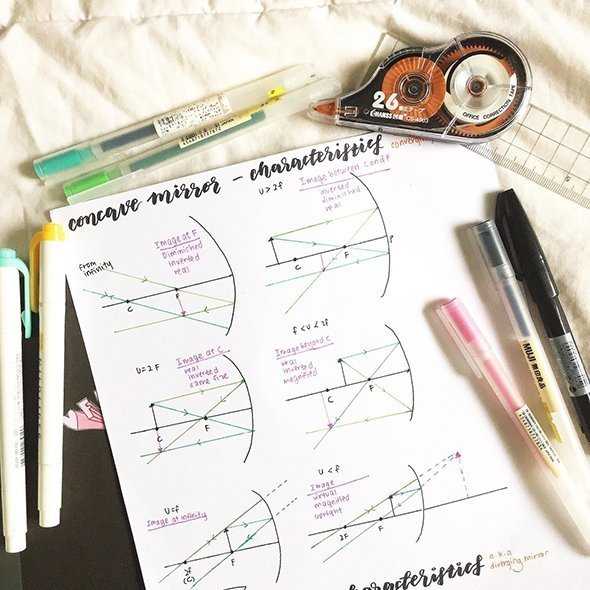 concave mirror - characteristics
converg
From
infinity
Image at F
Diminished
inverted
real
F
C
u > 2f
Image between C and F
inverted
diminished
real
C
F
P
u = 2F
Image at C
real
inverted
same size
C
F
f < u < 2f
Image beyond C
real
inverted
magnified
C
F
u=f
Image at infinity
2f
(C)
F
u < f
Image
virtual
magnified
upright
2F
F
characteristics
a.k.a
diverging mirror
26
OFFICE CORRECTION TAPE
MUJI 無印良品